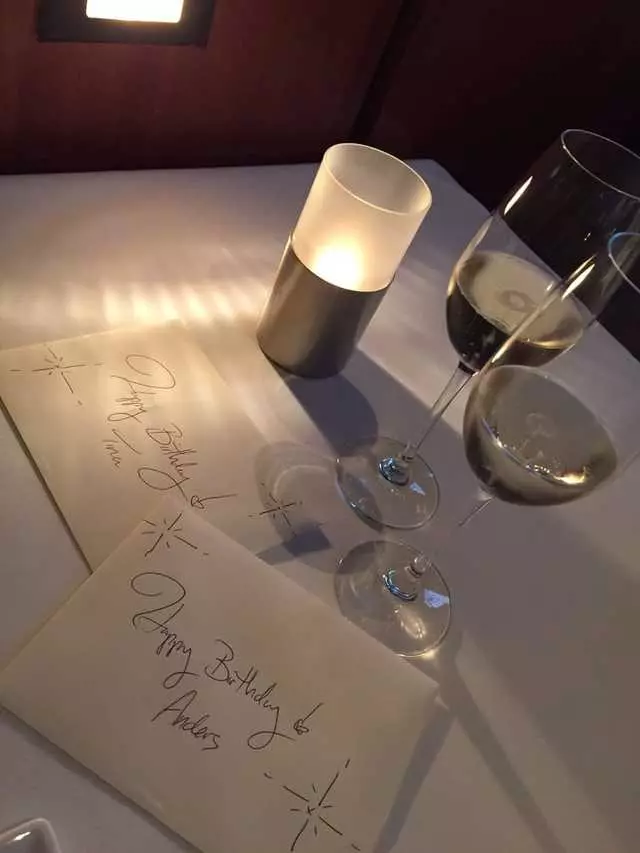 Happy Birthday
Tina
Happy Birthday
Anders